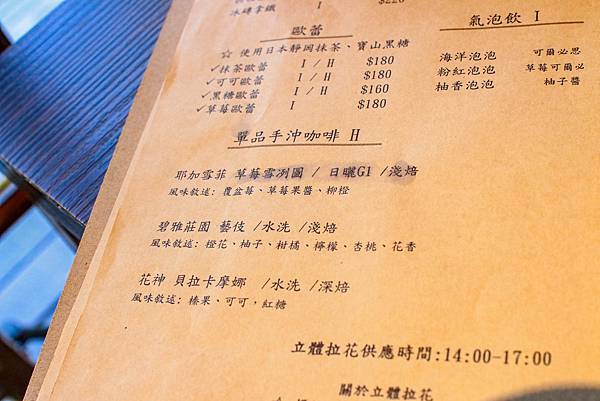 冰磚拿鐵 $220
歐蕾
☆ 使用日本靜岡抹茶、寶山黑糖
✓抹茶歐蕾 I / H $180
✓可可歐蕾 I / H $180
✓黑糖歐蕾 I / H $160
✓草莓歐蕾 I $180
氣泡飲 I
海洋泡泡 可爾必思
粉紅泡泡 草莓可爾必
柚香泡泡 柚子醬
單品手沖咖啡 H
耶加雪菲 草莓雪冽圖 / 日曬G1 /淺焙
風味敘述: 覆盆莓、草莓果醬、柳橙
碧雅莊園 藝伎 /水洗 /淺焙
風味敘述: 橙花、柚子、柑橘、檸檬、杏桃、花香
花神 貝拉卡摩娜 /水洗 /深焙
風味敘述: 榛果、可可，紅糖
立體拉花供應時間:14:00-17:00
關於立體拉花